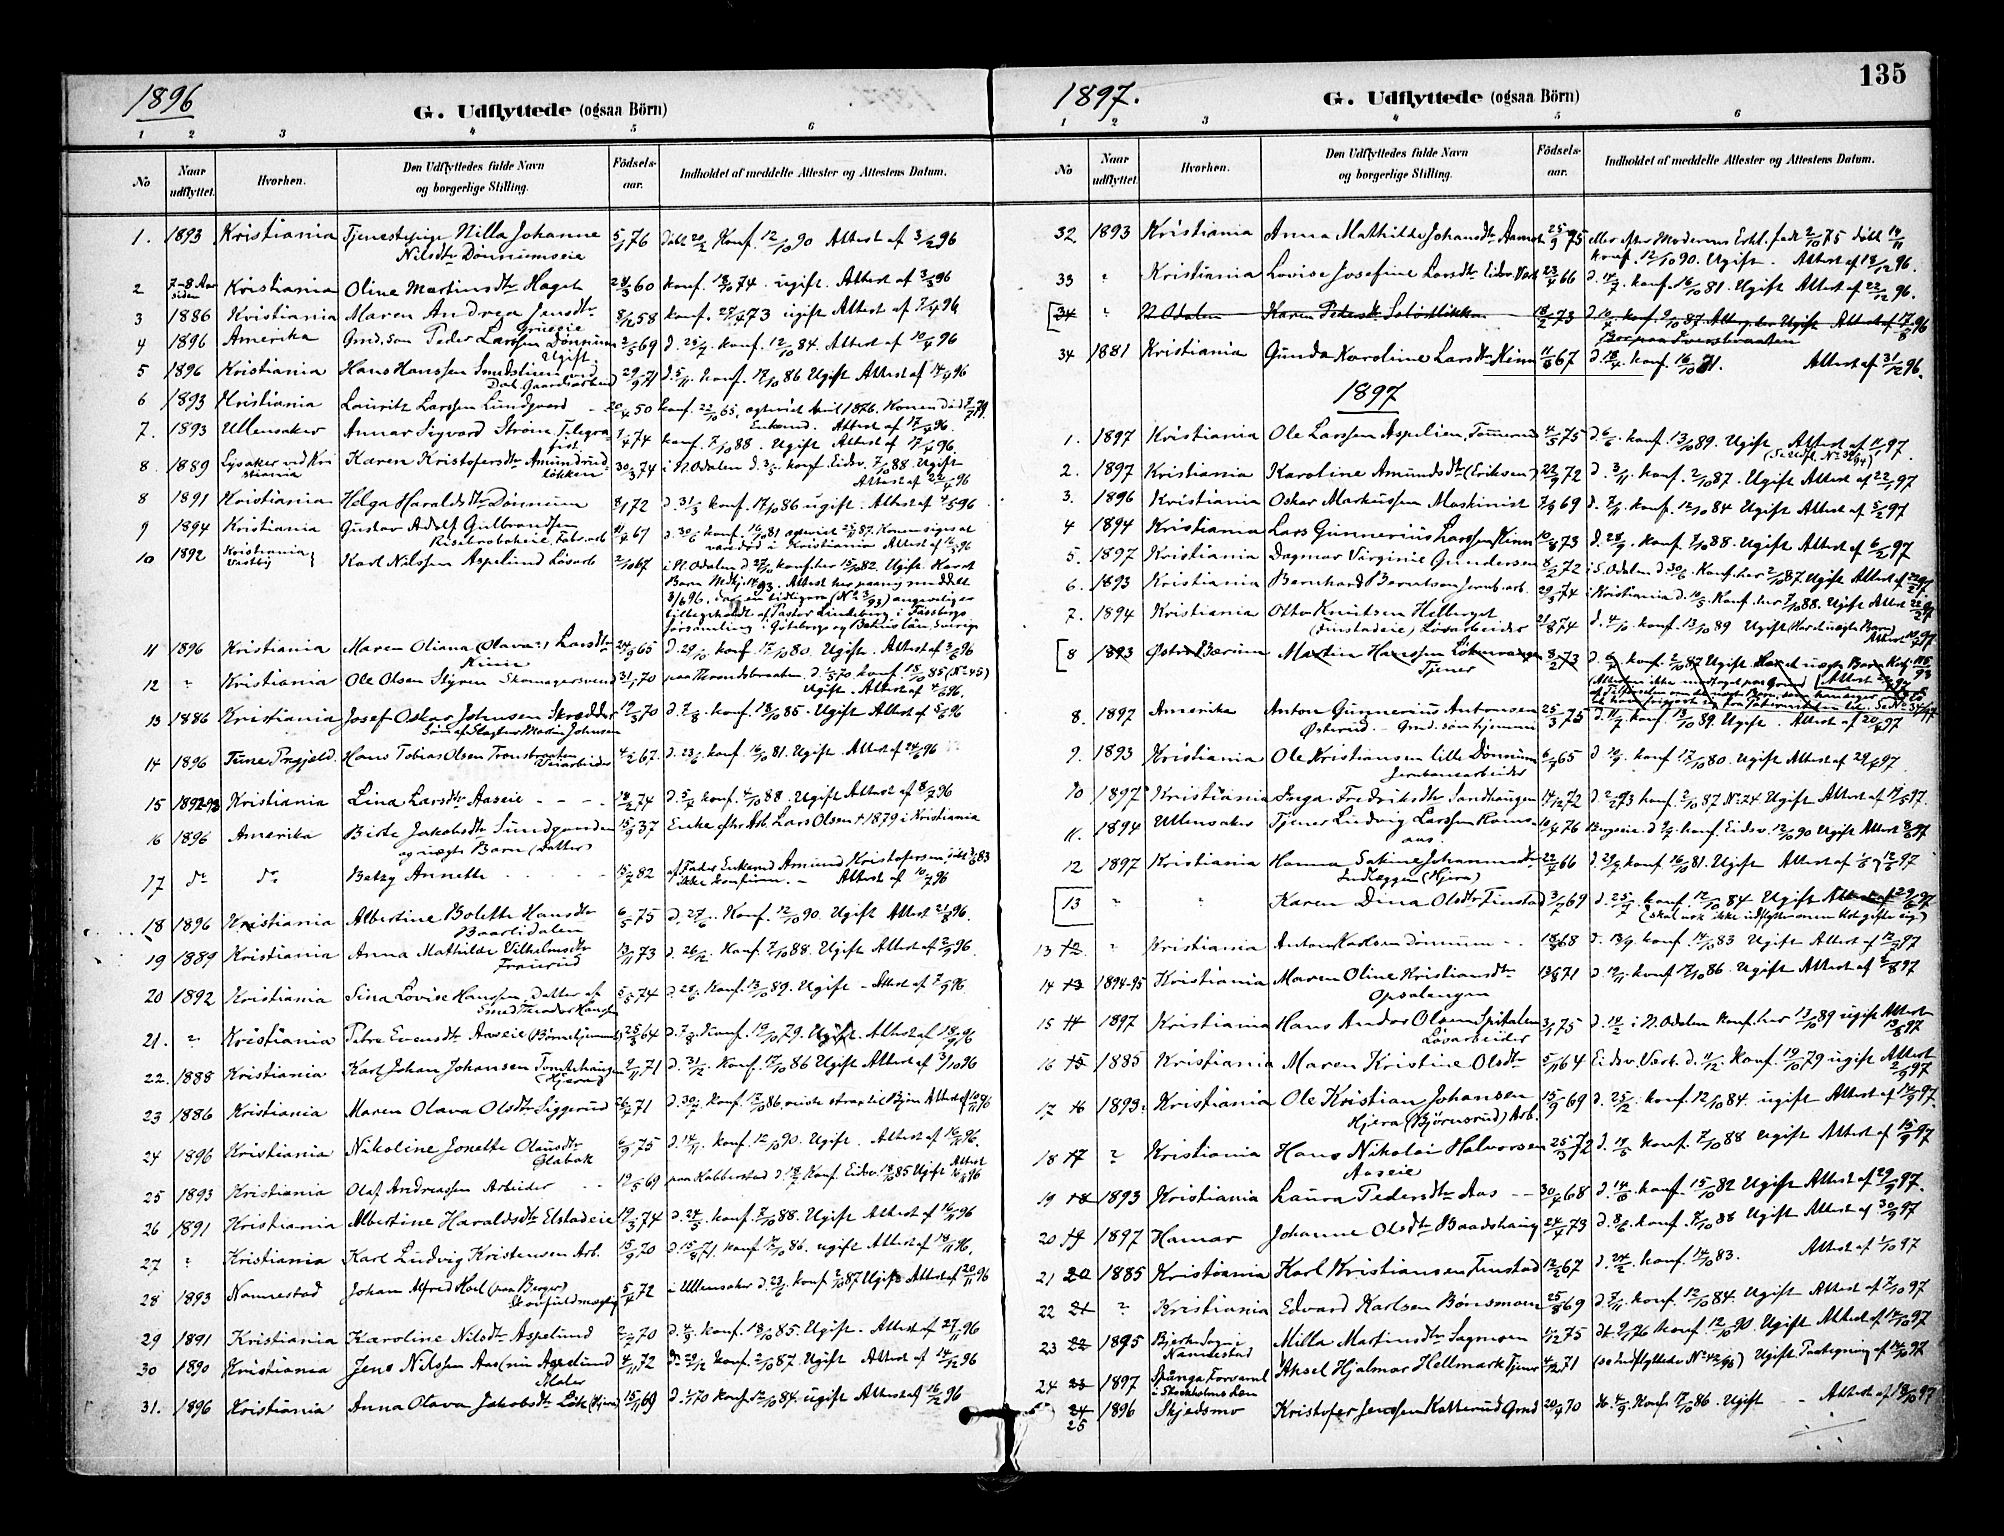 135
1896
G. Udflyttede (ogsaa Börn)
1 2 3 4 5 6
No
Naar udflyttet.
Hvorhen.
Den Udflyttedes fulde Navn og borgerlige Stilling.
Födsels-aar.
Indholdet af meddelte Attester og Attestens Datum.
1. 1893 Kristiania Tjenestepige Nilla Johanne 5/1 76 Döbt 20/2 Konf. 12/10 90 Attest af 3/2 96
Nilsdtr Dönniemseie
2 7-8 Aar siden Kristiania Oline Martinsdtr Haget 60 konf. 18/10 74. ugift. Attest af 3/3 96
3 1886 Kristiania Maren Andrea Jensdtr 8/12 58 konf. 73 ugift Attest af 7/4 96
4 1896 Amerika Gmd. søn Peder Larssen Dönnum 2/5 69 d. konf. 12/10 84. Attest af 10/4 96
Ugift.
5 1896 Kristiania Hans Hanssen 29/9 71 d. 5/11. konf. 17/10 86 Ugift Attest af 14/4 96
6 1893 Kristiania Lauritz Larssen Lundgaard 20/4 50 konf. 22/10 65, April 1876. Konen död
Enkemd. Attest af 17/4 96.
7. 1893 Ullensaker Annar Sigvard Ström Telegra- 1/4 74 konf. 7/10 88. Ugift Attest af 17/4 96.
fist
8. 1889 Lysaker ved Kri- Karen Kristofersdtr Amundrud- 30/3 74 i N. Odalen d. 3/5. konf. Eidsv. 7/10 88. Ugift
stiania lökken Attest af 22/4 96
8 1891 Kristiania Helga Haraldsdtr Dönnum 8/1 72 d. 31/3 konf. 17/10 86 ugift. Attest af 4/5 96
9 1894 Kristiania Gustav Adolf Gulbrandsen 67 d. 30/6 konf. 16/10 81 87.
10 1892 Kristiania Karl Nilssen Aspelund Lösarb. 2/10 67 i N. Odalen d. 27/10 konf. her 15/10 82. Ugift.
Vestby
Attest her paany meddelt
3/6 96, da en tidligere (No 3/93) angivelig er
af Pastor Lindeberg i Fässbergs
forsamling i Göteborgs og Bohus län, Sverige
11 1896 Kristiania Maren Oliana (Olava) Larsdtr 24/9 65 d. 29/10 konf. 17/10 80. Ugift. Attest af 3/6 96
Kinn
12 " Kristiania Ole Olsen Styren Skomagersvend 31/1 70 paa d. 70 konf. 18/10 85 (No 45)
Ugift. Attest af 4/6 96.
13 1886 Kristiania Josef Oskar Johnsen Skrædder 19/3 70 d. 7/8. konf. 18/10 85. Ugift Attest af 5/6 96
Søn af Slagter Martin Johnsen
14 1896 Tune Prgjeld. Hans Tobias Olsen 4/2 67. d. 23/6. konf. 16/10 81. Ugift. Attest af 24/6 96
15 1892-93 Kristiania Lina Larsdtr Aaseie 18/2 74 d. 5/7. konf. 4/10 88. Ugift. Attest af 8/7 96
16 1896 Amerika Birte Jakobsdtr Sundgunden 15/9 37 Enke efter Arb. Lars Olsen † 1879 i Kristiania
og uægte Barn (Datter)
17 do do Betzy Annette 15/2 82 af Fader Enkemd Amund Kristofersen, döbt 83
ikke konfirm. Attest af 10/7 96
18 1896 Kristiania Albertine Bolette Hansdtr 6/5 75 d. 27/6. Konf. 12/10 90. Ugift Attest 21/8 96.
Baarlidalen
19 1889 Kristiania Anna Mathilde Vilhelmsdtr 13/11 73 d. 26/12. Konf. 7/10 88. Ugift Attest af 2/9 96.
20 1892 Kristiania Sina Lovise Hanssen, Datter af 5/5 74 d. 28/6. Konf. 13/10 89. Ugift – Attest af 7/9 96.
Smed Theodor Hanssen
21. " Kristiania Petra Evensdtr Aaseie 25/3 64 d. 7/8. Konf. 19/10 79. Ugift. Attest af 18/9 96
22. 1888 Kristiania Karl Johan Johansen 9/11 71 d. 31/12. Konf. 17/10 86 Ugift Attest af 3/10 96
(Hjera)
23 1886 Kristiania Maren Olava Olsdtr Siggerud 26/2 71 d. 30/7. Konf. 17/10 86. Attest af 10/11 96
24 1896 Kristiania Nikoline Jonette Olausdtr 6/9 75 d. 14/11. konf. 12/10 90. Ugift. Attest af 16/11 96.
Olabak
25 1893 Kristiania Olaf Andreassen Arbeider 12/5 69 paa Habberstad d. 18/7 Konf. Eidsv. 18/10 85 Ugift Attest
26 1891 Kristiania Albertine Haraldsdtr Elstadeie 19/3 74 d. 24/5. konf. 7/10 88. Ugift. Attest af 16/11 96
27 " Kristiania Karl Ludvig Kristensen Arb. 15/9 70 d. 71, konf 17/10 86. ugift Attest af 18/11 96.
28 1893 Nannestad Johan Alfred Hoel (paa Berger) 5/4 72 i Ullensaker d. 23/6. konf. 2/10 87 Ugift Attest af 20/11 96
29 1891 Kristiania Karoline Nilsdtr Aspelund 2/2 70 d. 4/3. konf. 18/10 85. Ugift. Attest af 27/11 96
30 1890 Kristiania Jens Nilssen Aas (nu Aspelund 4/11 72 d. 29/12 konf. 2/10 87. Ugift Attest af 14/12 96
Maler
31. 1896 Kristiania Anna Olava Jakobsdtr Lök (Hjera) 15/11 69 d. 1/1 70 konf. 12/10 84. ugift Attest af 16/12 96
1897.
G. Udflyttede (ogsaa Börn)
1 2 3 4 5 6
No
Naar udflyttet.
Hvorhen.
Den Udflyttedes fulde Navn og borgerlige Stilling.
Födsels-aar.
Indholdet af meddelte Attester og Attestens Datum.
32 1893 Kristiania Anna Mathilde Johansdtr Aamot 25/9 75 eller efter Moderens Erkl. født 2/10 75 döbt 14/11
konf. 12/10 90. Ugift. Attest af 18/12 96.
33 " Kristiania Lovise Josefine Larsdtr Eidsv. Verk 23/4 66 d. 17/7. konf. 16/10 81. Ugift Attest af 22/12 96.
34 " N Odalen Karen Pedersdtr 18/2 73 d. 10/4 konf. 9/10 87. Ugift Attest af 96
34 1881 Kristiania Gunda Karoline Larsdtr Kinn 11/3 67 d. 18/4. konf. 16/10 81. Attest af 31/12 96.
1897
1. 1897 Kristiania Ole Larssen Aspelien, Tømmermd 4/5 75 d. 6/6. konf. 13/10 89. Ugift Attest af 11/1 97.
(Se Udfl. No 32/94)
2. 1897 Kristiania Karoline Amundsdtr (Eriksen) 22/9 72 d. 3/11. konf. 2/10 87. Ugift Attest af 22/1 97
3. 1896 Kristiania Oskar Markussen Maskinist 7/9 69 d. 7/11. konf. 12/10 84 Ugift Attest af 5/2 97
4 1894 Kristiania Lars Gunnerius Larssen Kinn 10/8 73 d. 28/9. konf 7/10 88. Ugift Attest af 6/2 97
5. 1897 Kristiania Dagmar Virginie Gundersen 8/2 72 i S. Odalen d. 30/6. Konf. her 2/10 87. Ugift Attest af
6. 1893 Kristiania Bernhard Berntsen Jernb.arb. 29/3 74 i Kristiania d. 10/5. Konf. her 7/10 88. Ugift Attest
7. 1894 Kristiania Otto Knutsen Helberget 21/8 74 d. 4/10. konf. 13/10 89 Ugift (Har et uægte Barn)
(Finstadeie) Lösarbeider Attest
8 1893 Østre Bærum Martin Hanssen 8/2 73 d. 6/4 konf. 2/10 87 Ugift Har et uægte Barn
Tjener
8. 1897 Amerika Anton Gunnerius Antonsen 25/3 75 d. 11/7. konf. 13/10 89. Ugift. Attest af 20/4 97
Østerud – Gmd. søn hjemme
9. 1893 Kristiania Ole Kristiansen lille Dönnum 6/7 65 d 10/9. konf. 17/10 80. Ugift Attest af 29/4 97.
Jernbanearbeider
10 1897 Kristiania Inga Fredriksdtr Sandhaugen 14/12 72 d. 2/2 73 konf. 2/10 87 No 24 Ugift Attest af 19/5 97.
11. 1894 Ullensaker Tjener Ludvig Larssen Rams- 10/4 76 Bergseie. d. konf. Eidsv. 12/10 90 Ugift Attest 8/6 97
aas.
12 1897 Kristiania Hanna Sabine Johannesdtr 22/4 66 d. 29/7 konf 16/10 81. Ugift Attest af 97
(Hjera)
13 " " Karen Dina Olsdtr Finstad 3/7 69 d. 25/7. konf. 12/10 84 Ugift Attest af 97
(skal nok ikke udflytte men blot gifte sig)
13 12 " Kristiania Anton Karlsen Dönnum 68 d. 13/9. konf. 14/10 83 Ugift Attest af 12/7 97
14 13 1894-95 Kristiania Maren Oline Kristiansdtr 13/8 71 d. 12/11. konf 17/10 86. Ugift Attest af 97
Opsalengen
15 14 1897 Kristiania Hans Andor Olsen Spitalen 3/1 75 d. 14/2 i N. Odalen konf. her 13/10 89 ugift Attest
Lösarbeider 13/8 97
16 15 1885 Kristiania Maren Kristine Olsdtr 5/11 64 Eidsv. Verk. d. 11/12. konf. 19/10 79 ugift Attest
2/9 97
17 16 1893. Kristiania Ole Kristian Johansen 15/9 69 d. 25/12. konf. 12/10 84. ugift Attest af 14/9 97.
Hjera (Bjørnsrud) Arb.
18 17 " Kristiania Hans Nikolai Halvorsen 25/3 72 d. 19/5. konf. 7/10 88 Ugift Attest af 15/9 97
Aaseie
19 18 1893 Kristiania Laura Pedersdtr Aas 30/4 68 d. 14/6. konf. 15/10 82 Ugift Attest af 29/9 97.
20 19 1897 Hamar Johanne Olsdtr Baadshaug 24/4 73 d. 8/6. konf. 86 Ugift Attest af 30/9 97
21 20 1885 Kristiania Karl Kristiansen Finstad 12/2 67 d. 24/2. konf. 14/10 83. Attest af 1/10 97
22 21 " Kristiania Edvard Karlsen Bönsmoen 25/8 69 d. 7/11. konf. 12/10 84. Ugift Attest af 7/10 97
23 22 1895 Bjerke Sogn i Milla Martinsdtr Sagmoen 1/12 75 dt. 9/1 76 konf. 12/10 90. Ugift Attest af 14/10 97
Nannestad
24 23 1897 Spånga Forsaml. Aksel Hjalmar Hellmark Tjener 4/12 71 (se Indflyttede No 42/93) Ugift Paategning af 14/10 97
i Stockholms län
24 1896 Skjedsmo Kristofer Jenssen Katterud Gmd 20/4 70 dt. 4/9. Konf. 17/10 86. Ugift – Attest af 18/10 97
25